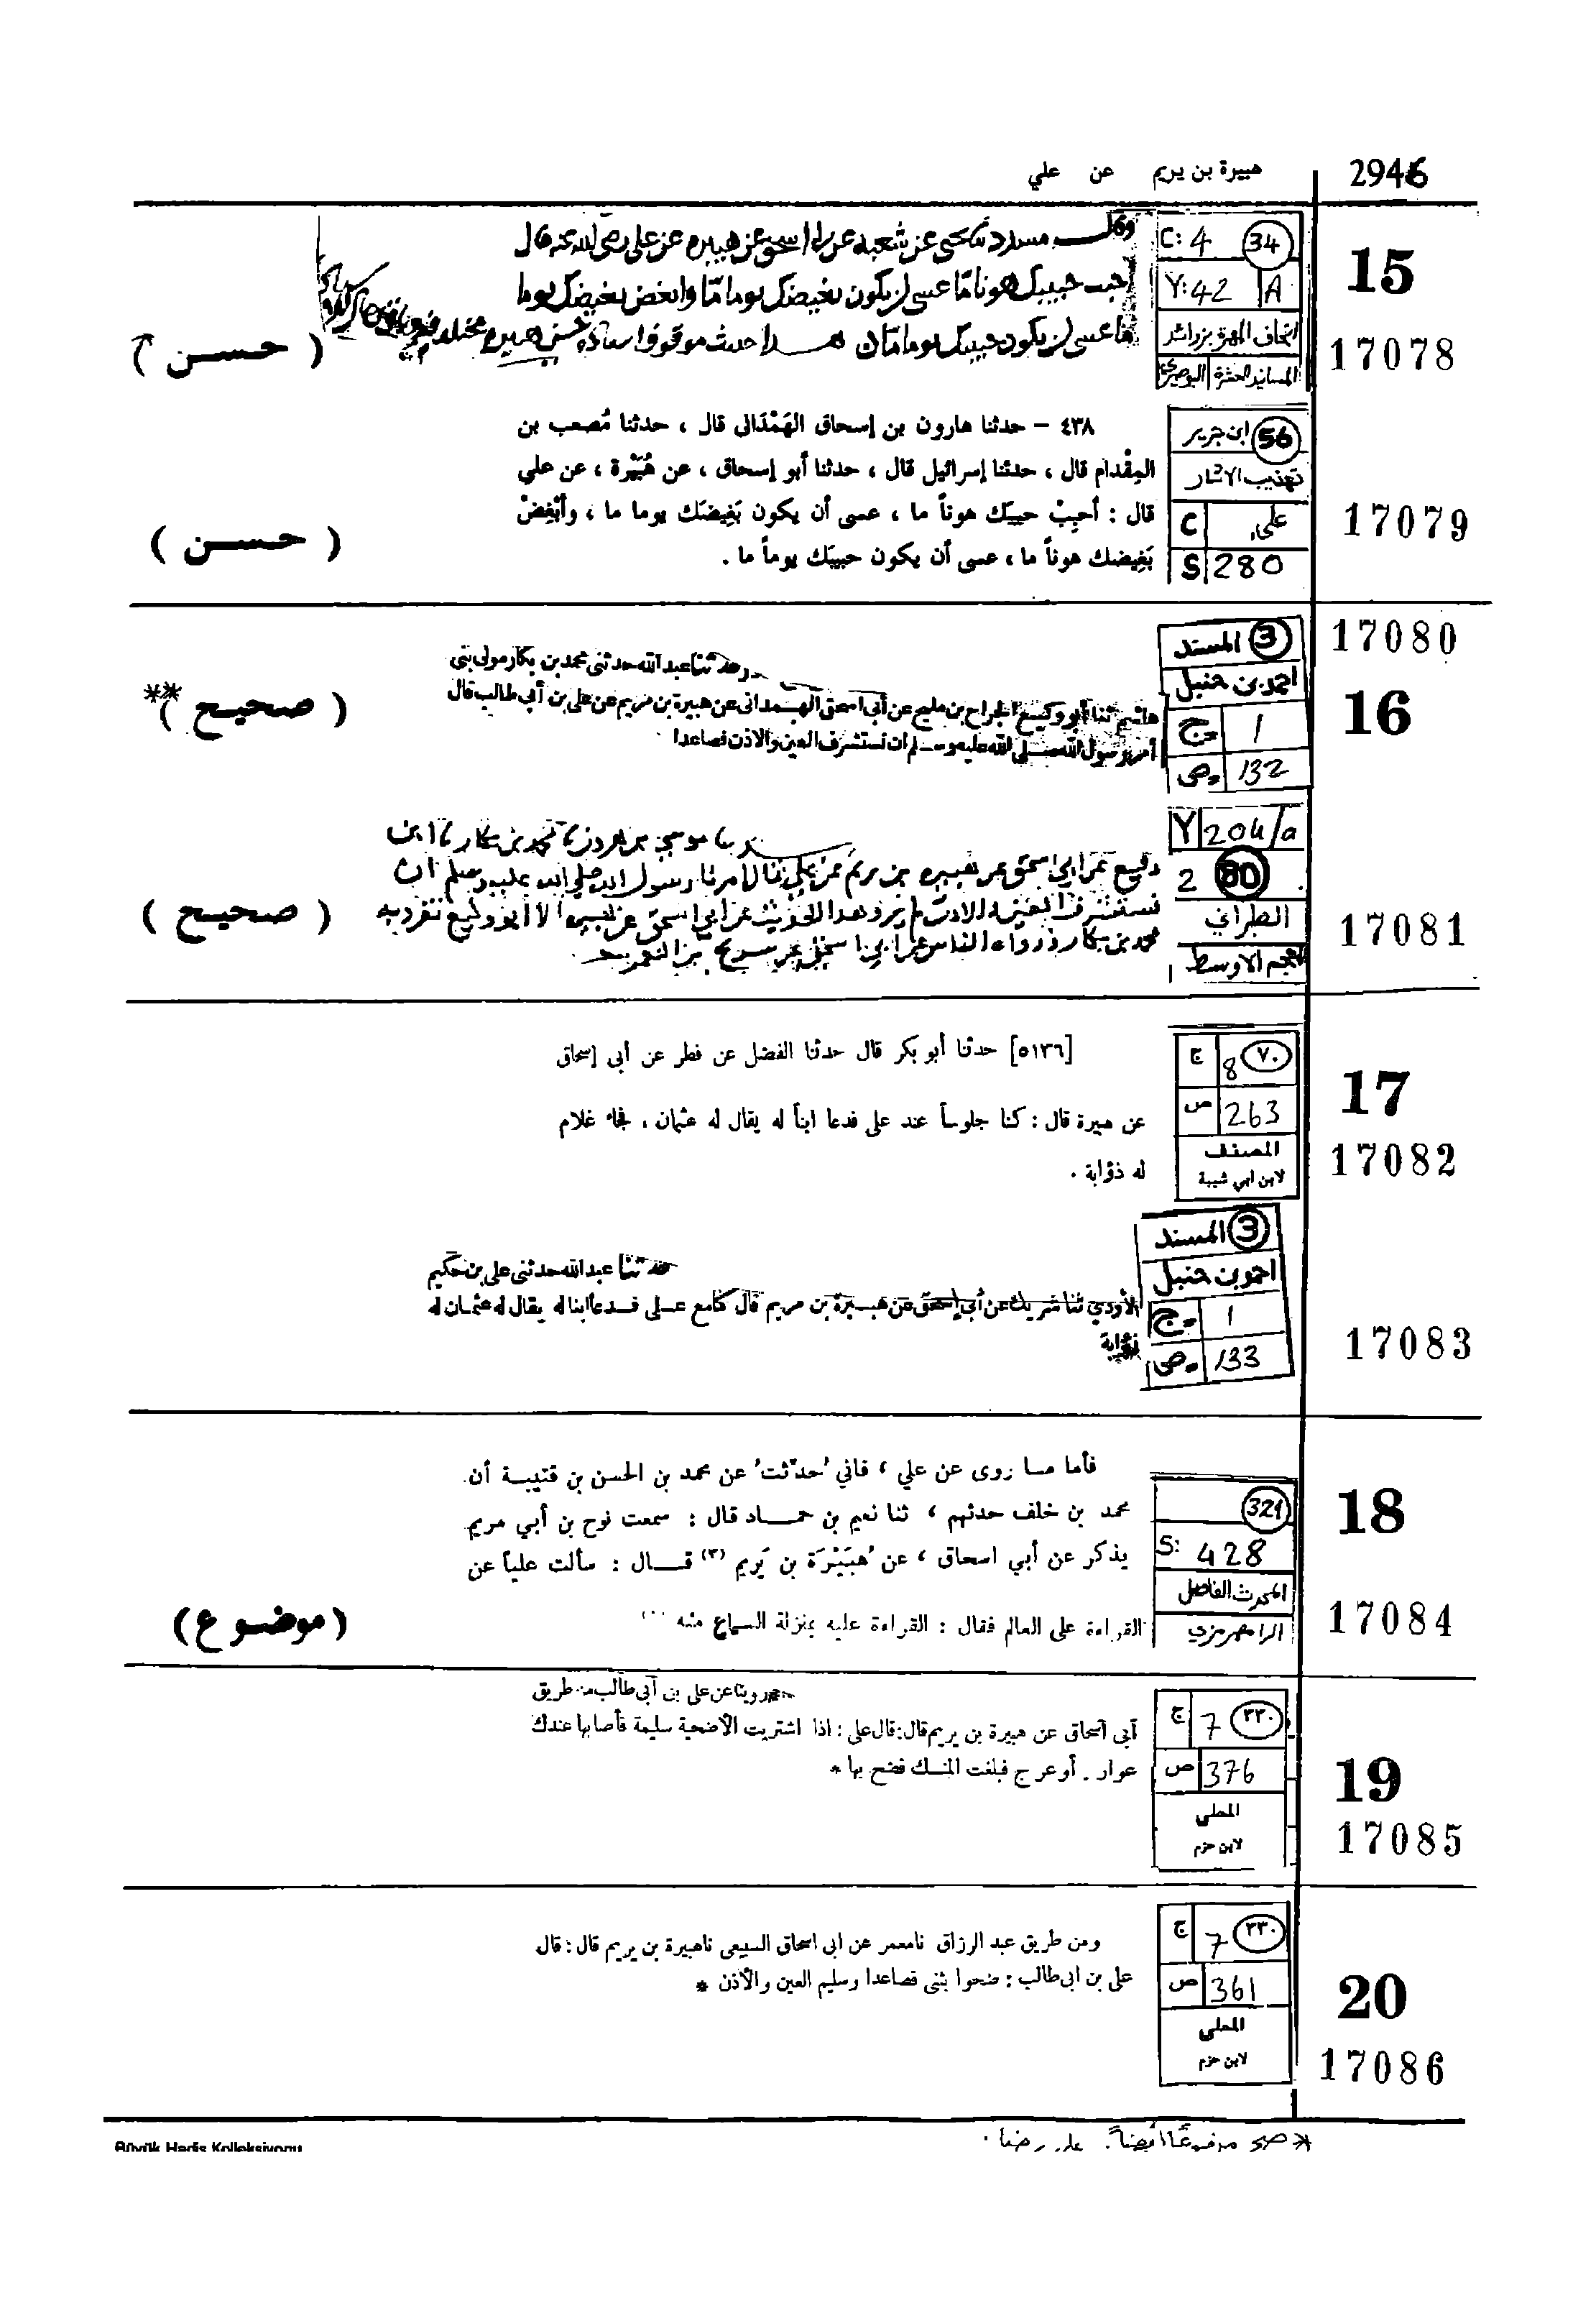 2946
هبيرة بن يريم عن علي
15
17078
C: 4 34
Y: 42 A
اتحاف المهرة بزوائد
المسانيد العشرة البوصيري
وقال مسدد ثنا يحيى عن شعبة عن ابي اسحق عن هبيرة عن علي رضي الله عنه قال
احبب حبيبك هونا ما عسى ان يكون بغيضك يوما ما وابغض بغيضك يوما
ما عسى ان يكون حبيبك يوما ما
( حسن )
17079
56 ابن جرير
تهذيب الآثار
C علي
S 280
٤٣٨ – حدثنا هارون بن إسحاق الهَمْدَانى قال ، حدثنا مُصعب بن
المِقْدام قال ، حدثنا إسرائيل قال ، حدثنا أبو إسحاق ، عن هُبَيْرة ، عن علي
قال : أحبِبْ حبيبَك هوناً ما ، عسى أن يكون بَغِيضَك يوما ما ، وأَبْغِضْ
بَغِيضك هوناً ما ، عسى أن يكون حبيبَك يوماً ما .
( حسن )
17080
16
3 المسند
احمد بن حنبل
ج 1
ص 132
حدثنا عبد الله حدثنى محمد بن بكار مولى بنى
هاشم ثنا أبو وكيع الجراح بن مليح عن أبى اسحق الهمدانى عن هبيرة بن مريم عن على بن أبى طالب قال
أمر رسول الله صلى الله عليه وسلم ان نستشرف العين والاذن فصاعدا
( صحيح ** )
17081
Y 204/a
2 80
الطبراني
المعجم الاوسط
( صحيح )
17
17082
ج 8 ٧٠
ص 263
المصنف
لابن ابي شيبة
[٥١٣٦] حدثنا أبو بكر قال حدثنا الفضل عن فطر عن أبى إسحاق
عن هبيرة قال : كنا جلوساً عند على فدعا ابناً له يقال له عثمان ، فجاء غلام
له ذؤابة .
17083
3 المسند
احمد بن حنبل
ج 1
ص 133
حدثنا عبد الله حدثنى على بن حكيم
الأودي ثنا شريك عن أبى إسحق عن هبيرة بن مريم قال كنا مع على فدعا ابنا له يقال له عثمان له
ذؤابة
18
17084
321
S: 428
المحدث الفاصل
الرامهرمزي
فأما مـا روى عن علي ، فاني حدّثت عن محمد بن الحسن بن قتيبـة أن
محمد بن خلف حدثهم ، ثنا نعيم بن حمـاد قال : سمعت نوح بن أبي مريم
يذكر عن أبي اسحاق ، عن هُبَيْرَة بن يَريم (٣) قـال : سألت علياً عن
القراءة على العالم فقال : القراءة عليه بمنزلة السماع منه
(موضوع)
19
17085
ج 7 ٣٣٠
ص 376
المحلى
لابن حزم
روينا عن على بن أبى طالب من طريق
أبى اسحاق عن هبيرة بن يريم قال: قال على : اذا اشتريت الأضحية سليمة فأصابها عندك
عوار . أو عرج فبلغت المنسك فضح بها *
20
17086
ج 7 ٣٣٠
ص 361
المحلى
لابن حزم
ومن طريق عبد الرزاق نامعمر عن ابى اسحاق السبيعى ناهبيرة بن يريم قال : قال
على بن ابى طالب : ضحوا بثنى فصاعدا وسليم العين والأذن *
Büyük Hadis Kolleksiyonu
* صح مرفوعًا أيضاً. علي رضا.